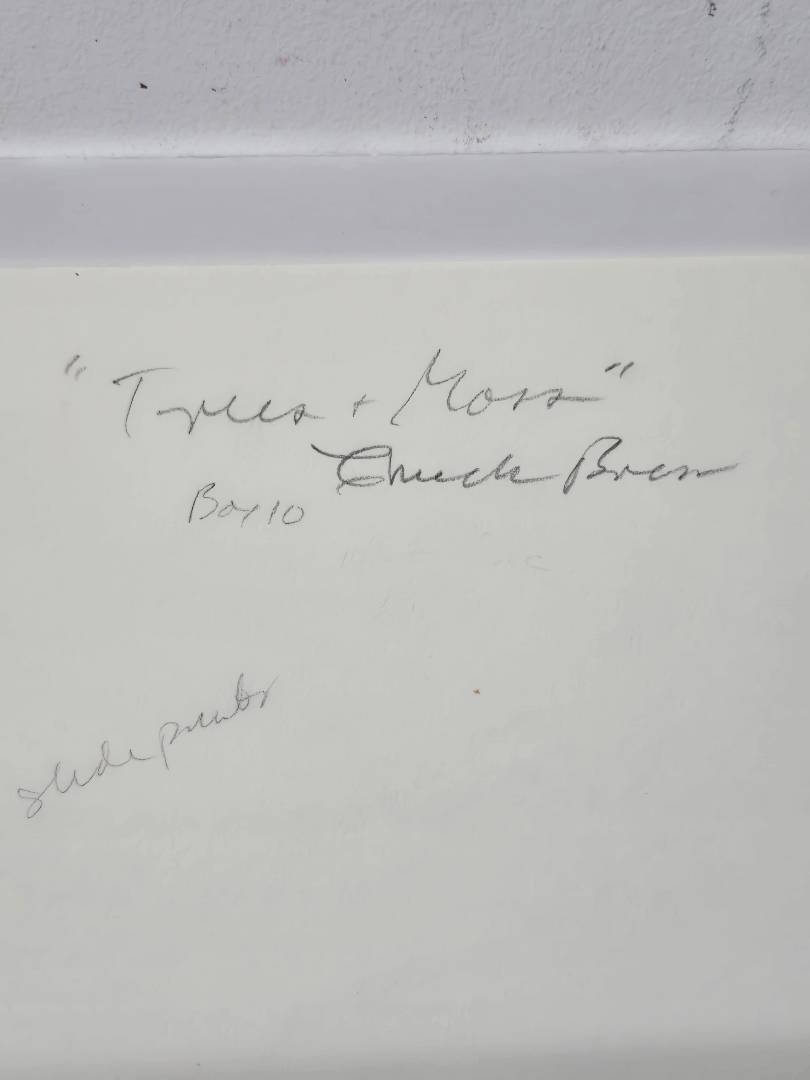 "Trees + Moss"
Chuck
Box 10
slide prints